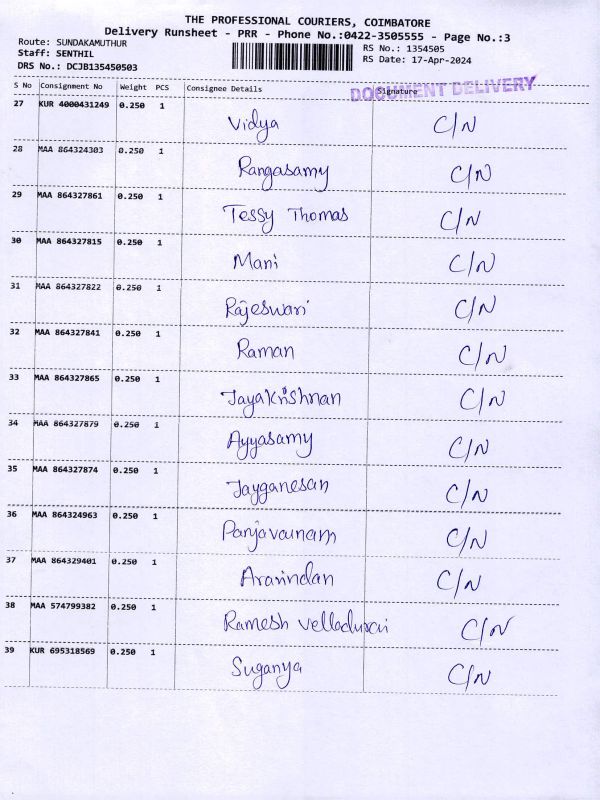 THE PROFESSIONAL COURIERS, COIMBATORE
Delivery Runsheet - PRR - Phone No.:0422-3505555 - Page No.:3
Route: SUNDAKAMUTHUR
Staff: SENTHIL
DRS No.: DCJB135450503
RS No.: 1354505
RS Date: 17-Apr-2024
DOCUMENT DELIVERY
S No Consignment No Weight PCS Consignee Details Signature
27 KUR 4000431249 0.250 1 Vidya C/N
28 MAA 864324303 0.250 1 Rangasamy C/N
29 MAA 864327861 0.250 1 Tessy Thomas C/N
30 MAA 864327815 0.250 1 Mani C/N
31 MAA 864327822 0.250 1 Rajeswari C/N
32 MAA 864327841 0.250 1 Raman C/N
33 MAA 864327865 0.250 1 Jayakrishnan C/N
34 MAA 864327879 0.250 1 Ayyasamy C/N
35 MAA 864327874 0.250 1 Jayganesan C/N
36 MAA 864324963 0.250 1 Panjavarnam C/N
37 MAA 864329401 0.250 1 Aravindan C/N
38 MAA 574799382 0.250 1 Ramesh Velladurai C/N
39 KUR 695318569 0.250 1 Suganya C/N